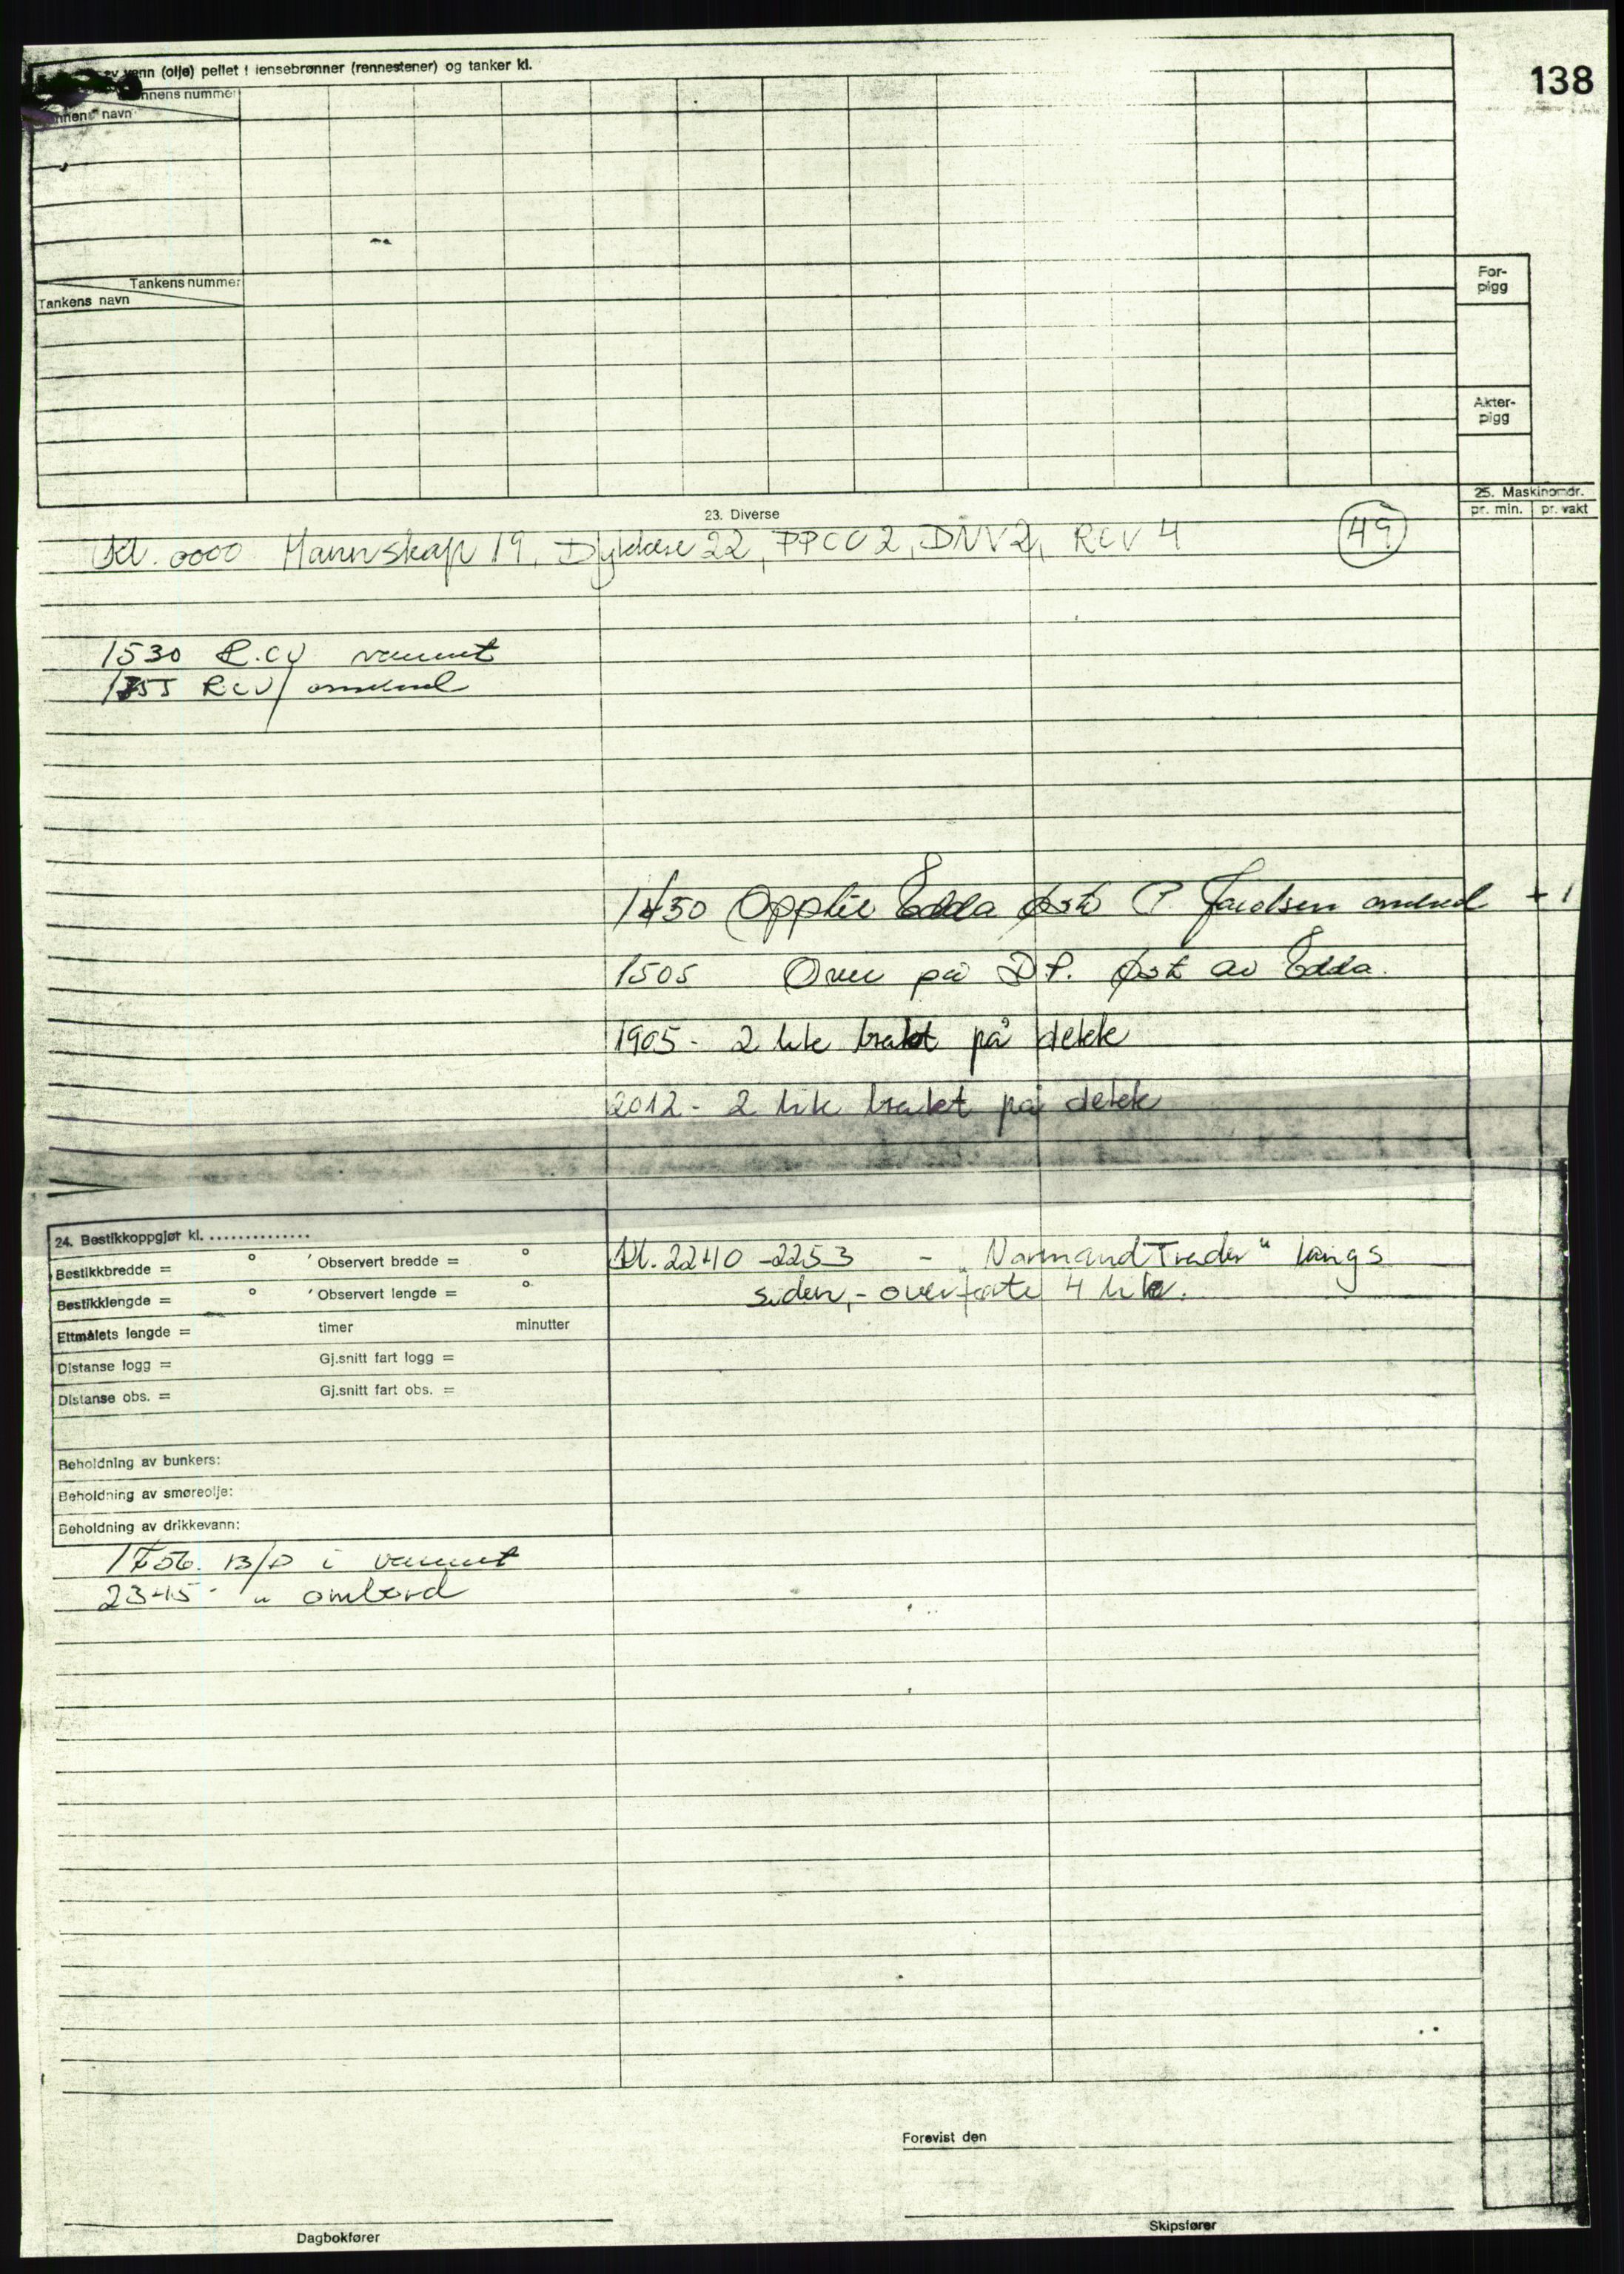 138
av vann (olje) peilet i lensebrønner (rennestener) og tanker kl.
nnens nummer
nnens navn
Tankens nummer
Tankens navn
For-
pigg
Akter-
pigg
25. Maskinomdr.
pr. min. pr. vakt
23. Diverse
Kl. 0000 Mannskap 19, Dykkere 22, PPCO 2, DNV 2, RCV 4 (49)
1530 R.CV vannet
RCV ombord
1450 Edda øst P. Jacobsen ombord + 1
1505 Over på D.P. øst av Edda.
1905 - 2 lik brakt på dekk
2012 - 2 lik brakt på dekk
24. Bestikkoppgjør kl. ..............
Bestikkbredde = ° ' Observert bredde = °
Bestikklengde = ° ' Observert lengde = °
Ettmålets lengde = timer minutter
Distanse logg = Gj.snitt fart logg =
Distanse obs. = Gj.snitt fart obs. =
Beholdning av bunkers:
Beholdning av smøreolje:
Beholdning av drikkevann:
Kl. 2240 - 2253 - „Normand Trader" langs
siden, - overførte 4 lik.
B/D i vannet
2345 - " ombord
Forevist den
Dagbokfører
Skipsfører